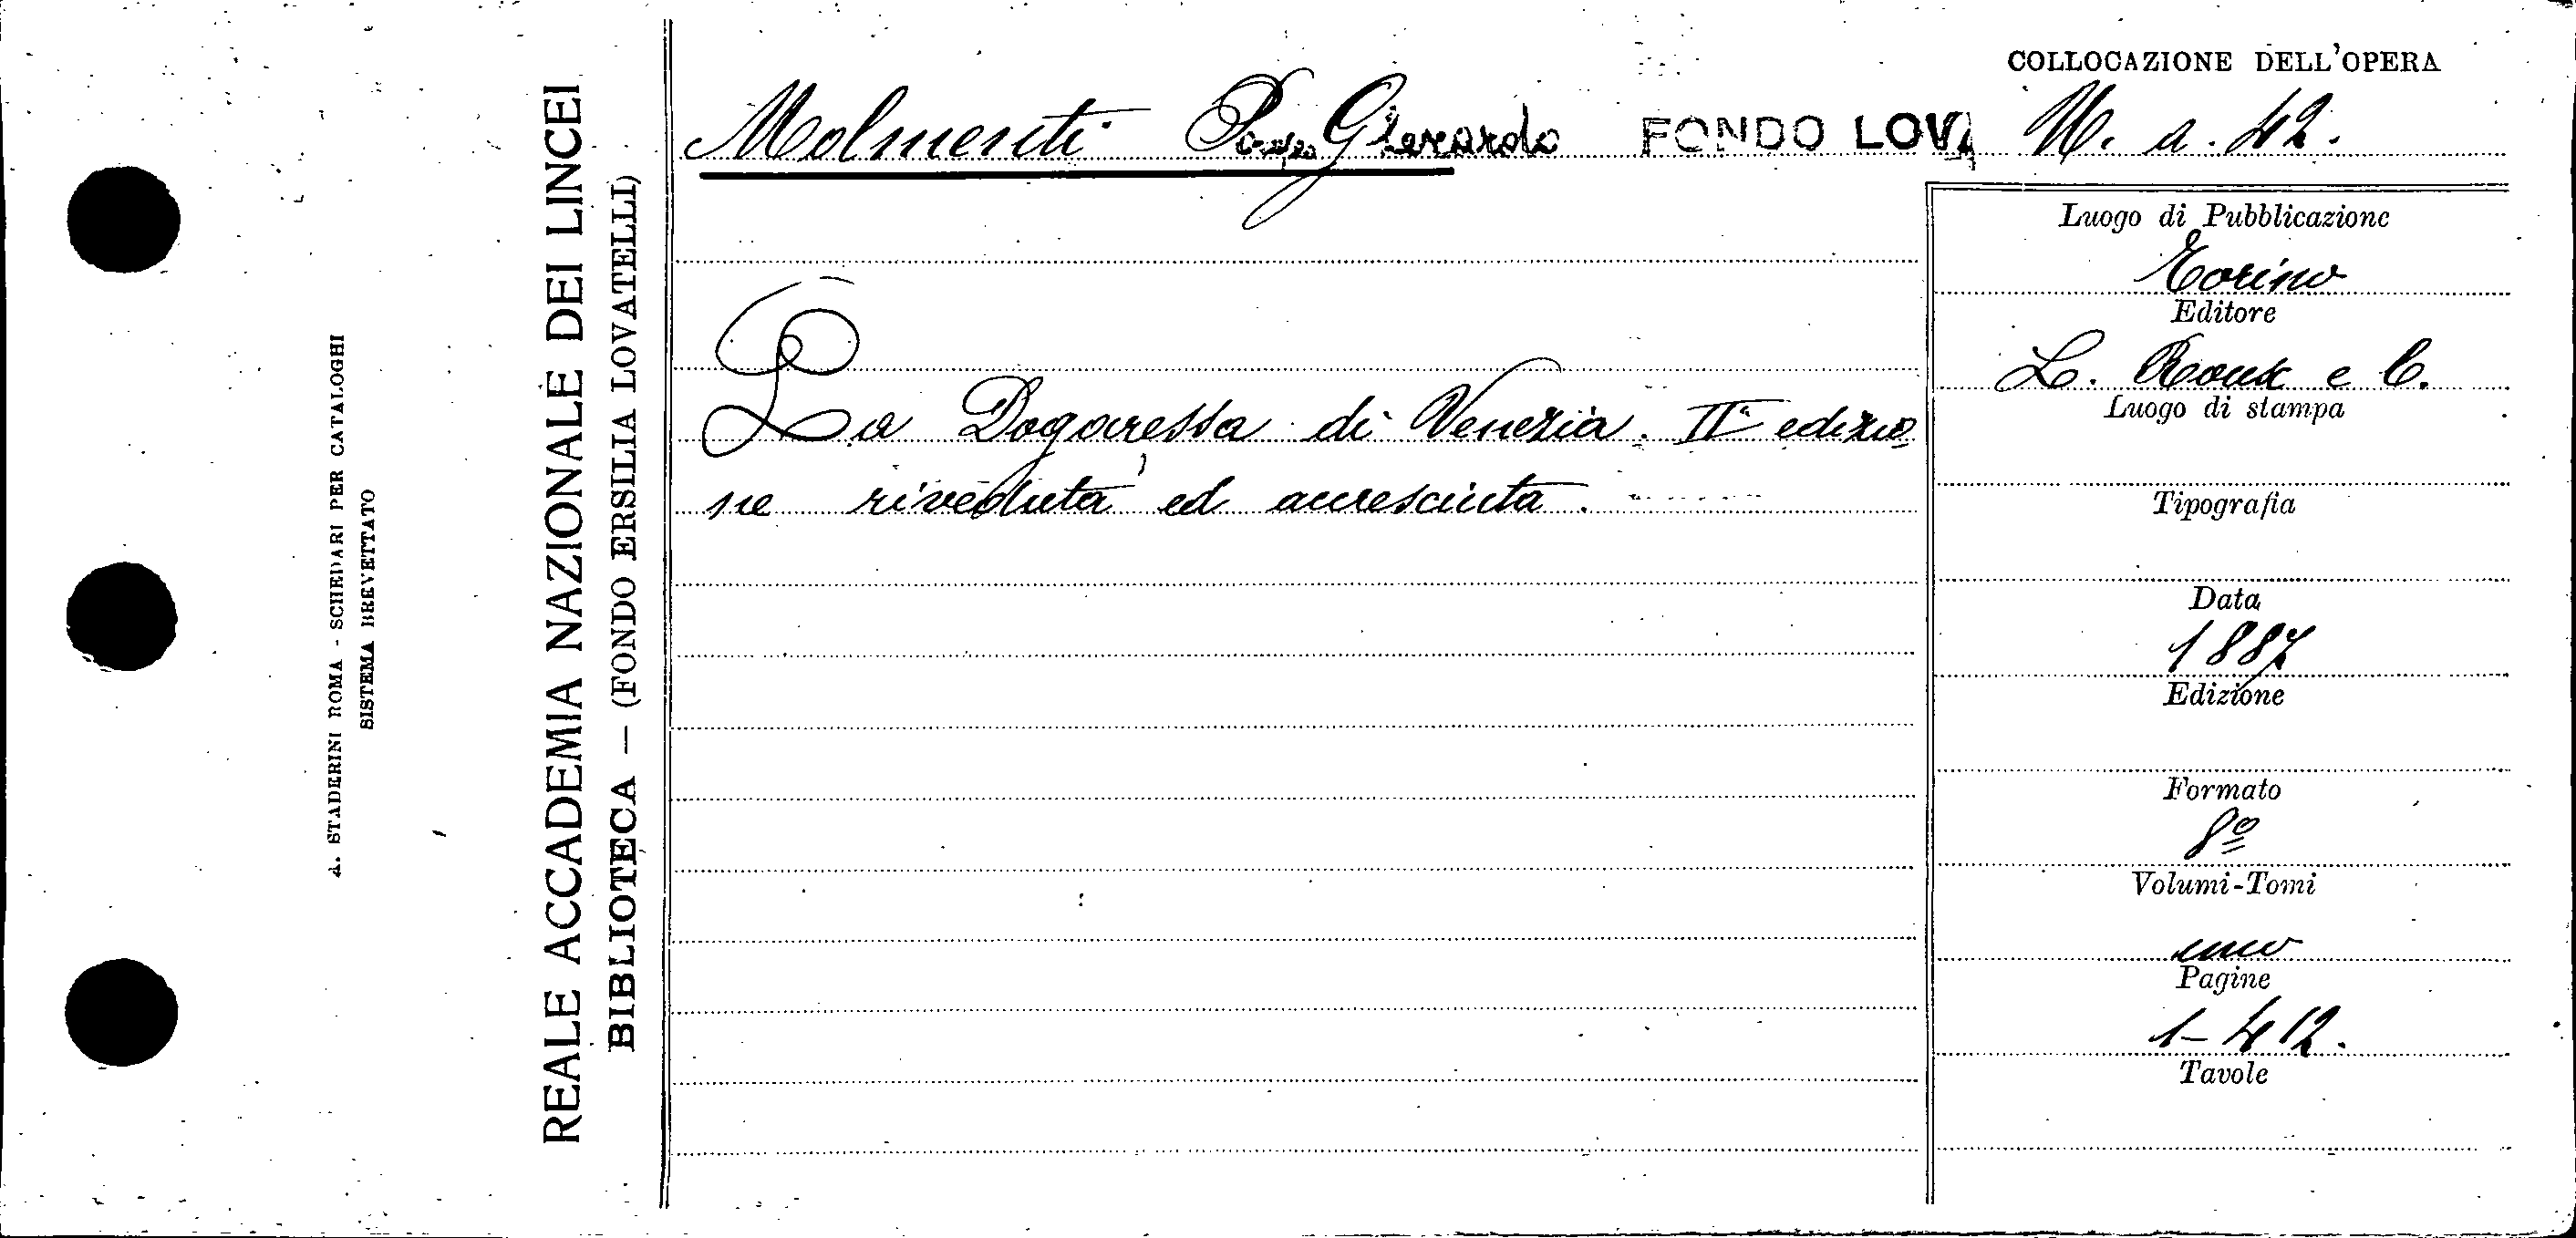 A. STADERINI ROMA - SCHEDARI PER CATALOGHI
SISTEMA BREVETTATO
REALE ACCADEMIA NAZIONALE DEI LINCEI
BIBLIOTECA — (FONDO ERSILIA LOVATELLI)
Molmenti Gherardo FONDO LOVA
La Dogaressa di Venezia. IIª edizio
ne riveduta ed accresciuta.
COLLOCAZIONE DELL'OPERA
a. 42.
Luogo di Pubblicazione
Torino
Editore
L. Roux e C.
Luogo di stampa
Tipografia
Data
1887
Edizione
Formato
8º
Volumi-Tomi
uno
Pagine
1-412.
Tavole